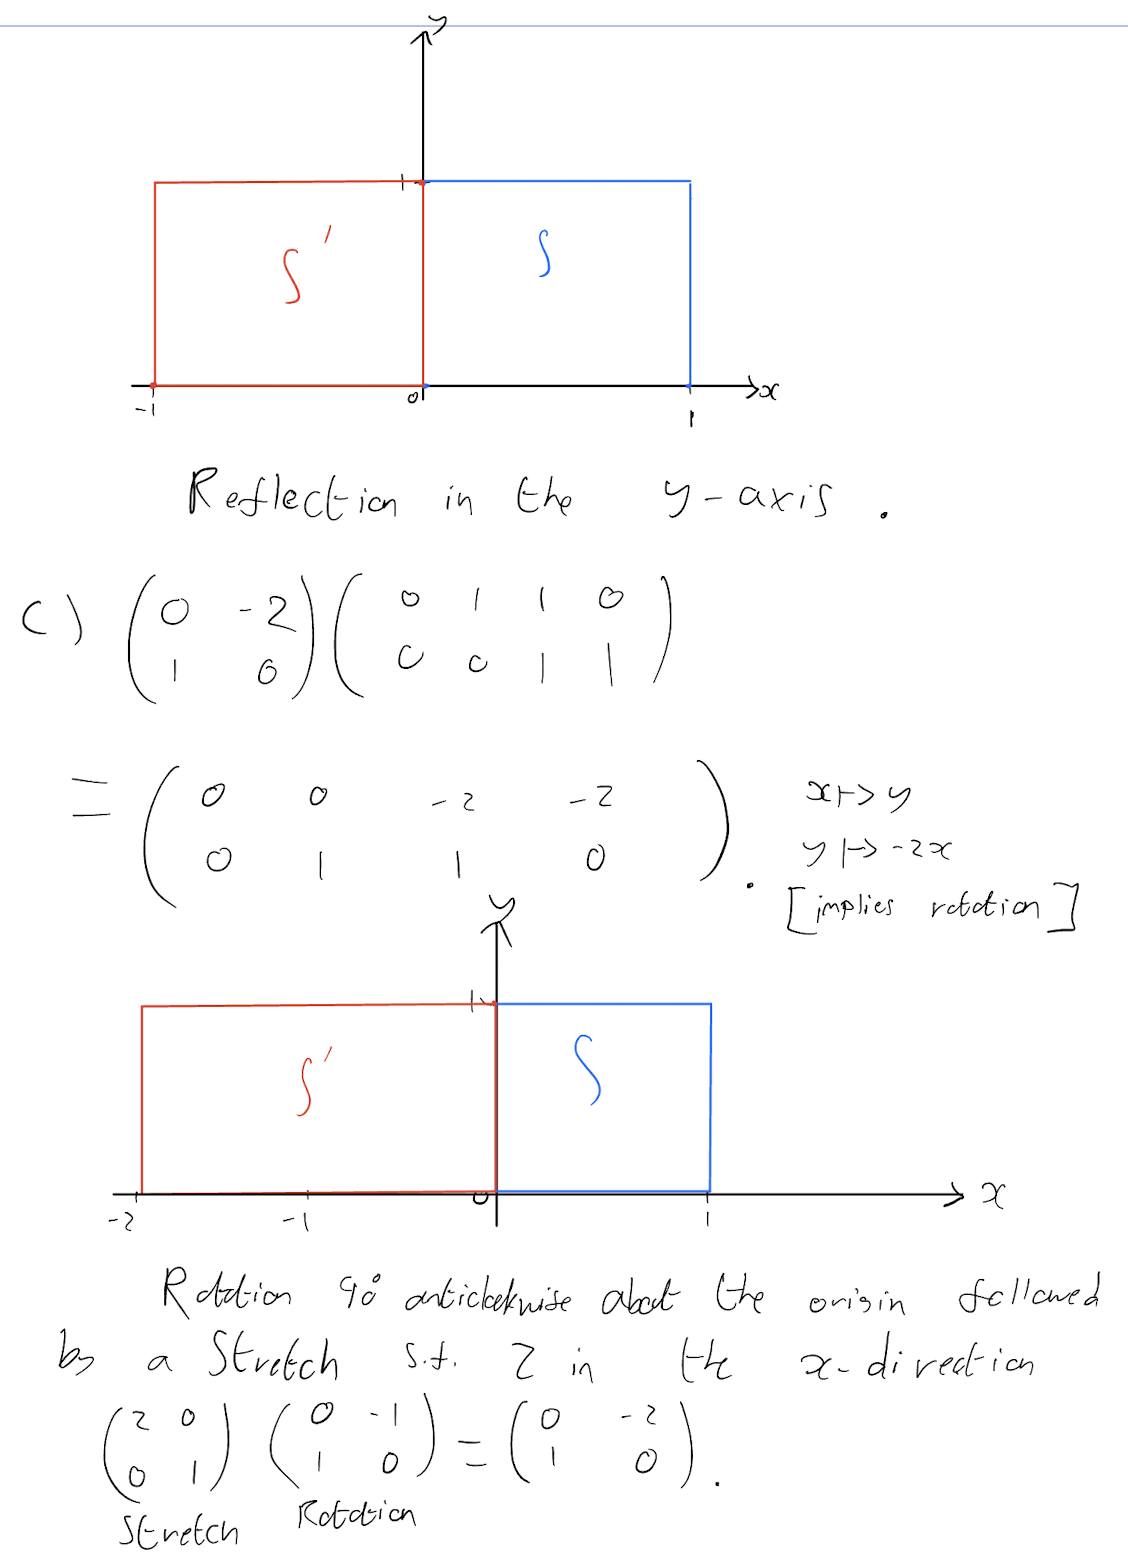 y
1
S' S
-1 0 1 x
Reflection in the y-axis.
c) (0 -2) (0 1 1 0)
(1 0) (0 0 1 1)
= (0 0 -2 -2) x ↦ y
(0 1 1 0). y ↦ -2x
[implies rotation]
y
1
S' S
-2 -1 0 1 x
Rotation 90° anticlockwise about the origin followed
by a Stretch s.f. 2 in the x-direction
(2 0) (0 -1) = (0 -2)
(0 1) (1 0) (1 0).
Stretch Rotation